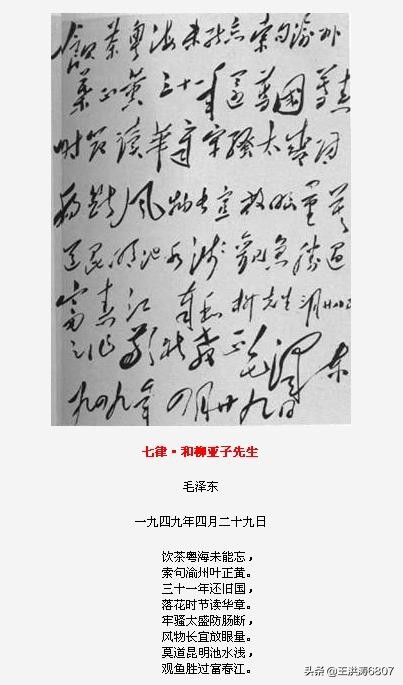 飲茶粤海未能忘索句渝州
葉正黄三十一年還舊國落花
时节读華章牢騷太盛防
腸断风物长宜放眼量莫
道昆明池水浅觀魚勝过
富春江 奉和柳先生三月廿八日
之作敬祈教正 毛泽东
一九四九年四月廿九日
七律·和柳亚子先生
毛泽东
一九四九年四月二十九日
饮茶粤海未能忘,
索句渝州叶正黄。
三十一年还旧国,
落花时节读华章。
牢骚太盛防肠断,
风物长宜放眼量。
莫道昆明池水浅,
观鱼胜过富春江。
头条 @王洪涛6807